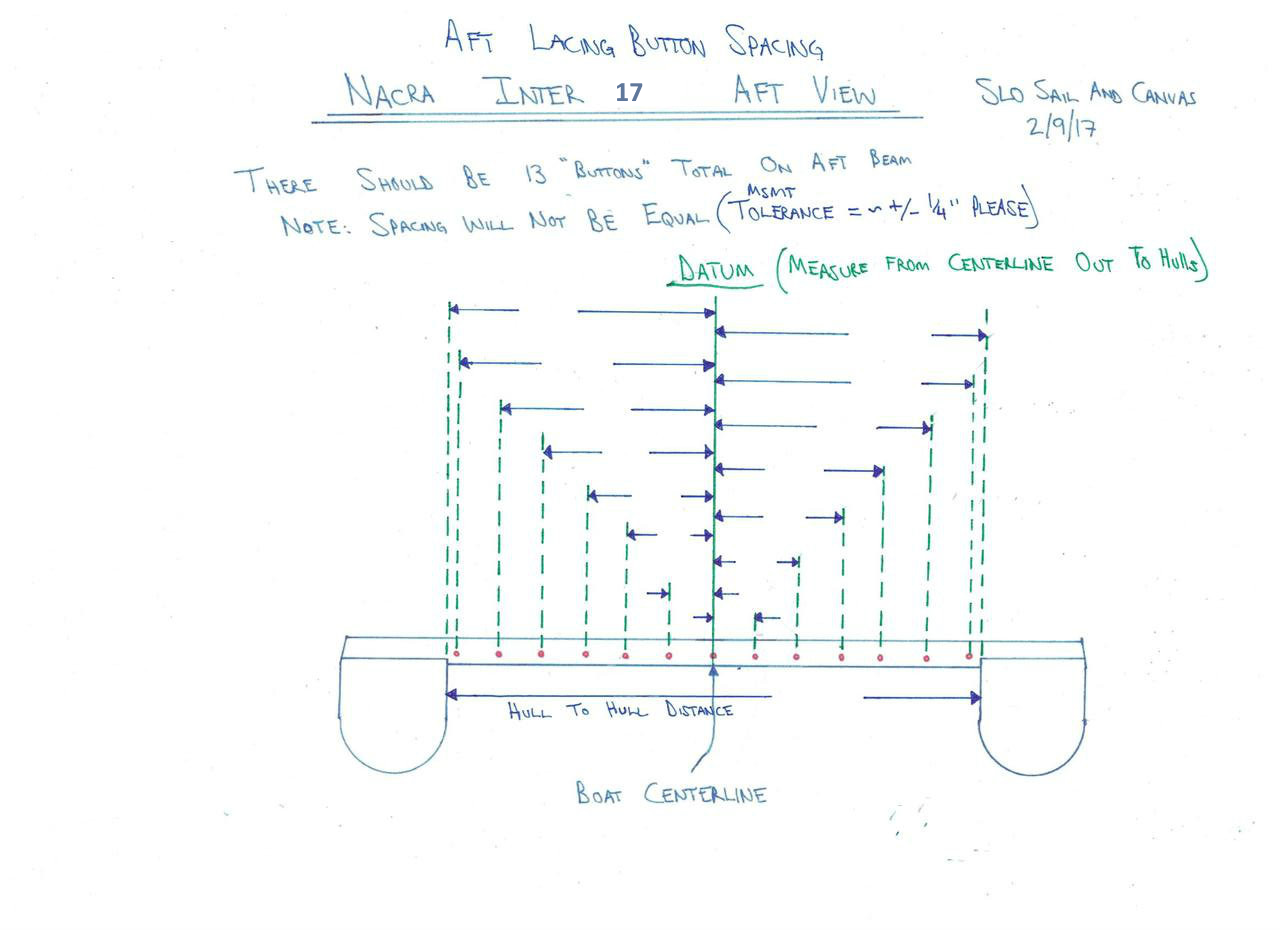 AFT LACING BUTTON SPACING
NACRA INTER 17 AFT VIEW
SLO SAIL AND CANVAS
2/9/17
THERE SHOULD BE 13 "BUTTONS" TOTAL ON AFT BEAM
NOTE: SPACING WILL NOT BE EQUAL (MSMT TOLERANCE = ~ +/- 1/4" PLEASE)
DATUM (MEASURE FROM CENTERLINE OUT TO HULLS)
HULL TO HULL DISTANCE
BOAT CENTERLINE